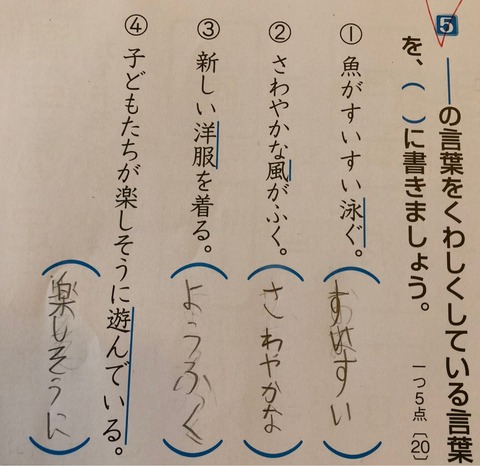 5 ――の言葉をくわしくしている言葉
を、( )に書きましょう。 一つ5点〔20〕
① 魚がすいすい泳ぐ。(すいすい)
② さわやかな風がふく。(さわやかな)
③ 新しい洋服を着る。(ようふく)
④ 子どもたちが楽しそうに遊んでいる。
(楽しそうに)